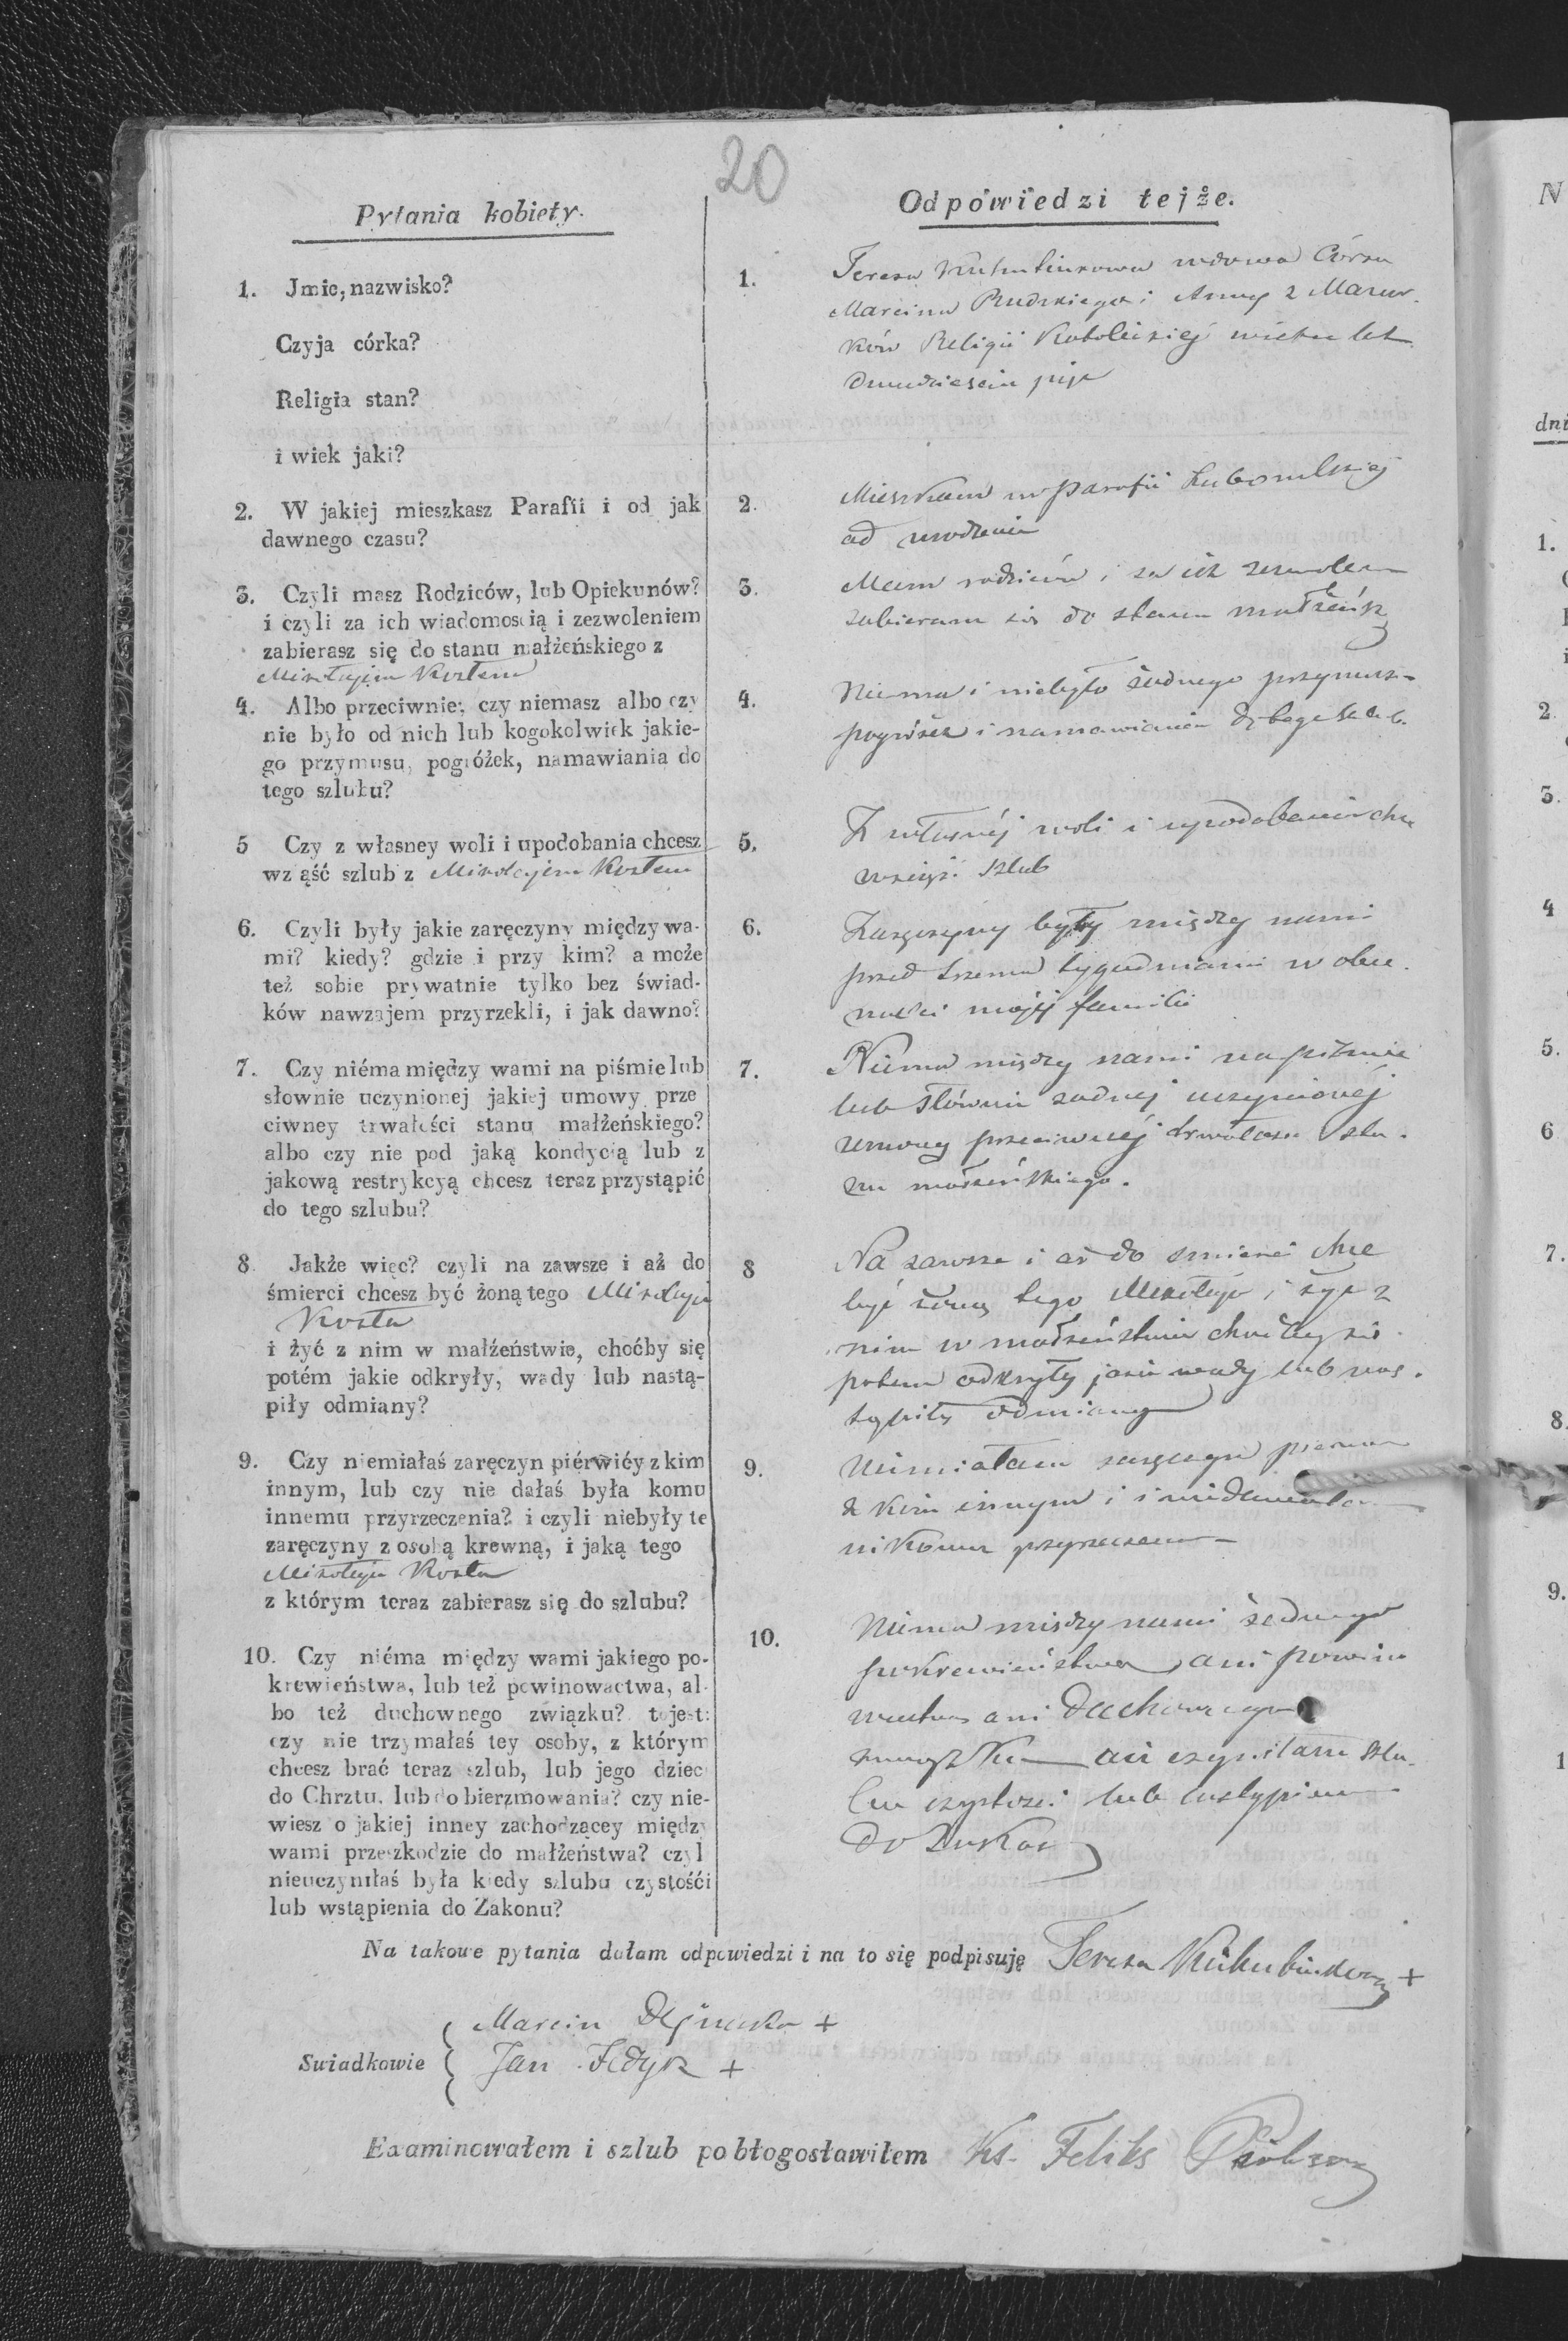 20
Pytania kobiety.
1. Jmie, nazwisko?
Czyja córka?
Religia stan?
i wiek jaki?
2. W jakiej mieszkasz Parafii i od jak
dawnego czasu?
3. Czyli masz Rodziców, lub Opiekunów?
i czyli za ich wiadomością i zezwoleniem
zabierasz się do stanu małżeńskiego z
Mikołajem Kostem
4. Albo przeciwnie: czy niemasz albo czy
nie było od nich lub kogokolwiek jakie-
go przymusu, pogróżek, namawiania do
tego szlubu?
5 Czy z własney woli i upodobania chcesz
wziąść szlub z Mikołajem Kostem
6. Czyli były jakie zaręczyny między wa-
mi? kiedy? gdzie i przy kim? a może
też sobie prywatnie tylko bez świad-
ków nawzajem przyrzekli, i jak dawno?
7. Czy niéma między wami na piśmie lub
słownie uczynionej jakiej umowy prze
ciwney trwałości stanu małżeńskiego?
albo czy nie pod jaką kondycią lub z
jakową restrykcyą chcesz teraz przystąpić
do tego szlubu?
8. Jakże więc? czyli na zawsze i aż do
śmierci chcesz być żoną tego Mikołaja
Kosta
i żyć z nim w małżeństwie, choćby się
potém jakie odkryły, wady lub nastą-
piły odmiany?
9. Czy niemiałaś zaręczyn piérwiéy z kim
innym, lub czy nie dałaś była komu
innemu przyrzeczenia? i czyli niebyły te
zaręczyny z osobą krewną, i jaką tego
Mikołaja Kosta
z którym teraz zabierasz się do szlubu?
10. Czy niéma między wami jakiego po-
krewieństwa, lub też powinowactwa, al-
bo też duchownego związku? to jest:
czy nie trzymałaś tey osoby, z którym
chcesz brać teraz szlub, lub jego dzieci
do Chrztu, lub do bierzmowania? czy nie-
wiesz o jakiej inney zachodzącey między
wami przeszkodzie do małżeństwa? czyl
nieuczyniłaś była kiedy szlubu czystośći
lub wstąpienia do Zakonu?
Odpowiedzi tejże.
1. Teresa wdowa Córka
Marcina Rudzkiego i Anny z Mazur
ków Religii Katolickiej wieku lat
2. Mieszkam w Parafii
od urodzenia
3. Mam rodziców i za ich
zabieram się do stanu małżeńsk
4. Niema i niebyło żadnego przymusu
pogróżek i namawiania do tego szlub.
5. Z własnéj woli i upodobania chcę
wziąść szlub
6. Zaręczyny były między nami
przed trzema tygodniami w obec
ności mojéj familii
7. Niema między nami na piśmie
lub słównie żadnej uczynionéj
umowy przeciwnéj trwałości sta-
nu małżeńskiego.
8 Na zawsze i aż do śmierci chcę
być żoną tego Mikołaja i żyć z
nim w małżeństwie choćby się
potem odkryły jakie wady lub nas-
tąpiły odmiany
9. Niemiałam zaręczyn pierwu
z kim innym i i niedawałam
nikomu przyrzeczenia
10. Niema między nami żadnego
pokrewieństwa, ani powino
wactwa ani Duchownego
związku ani czyniłam szlu-
bu czystości lub wstąpienia
do Zakon
Na takowe pytania dałam odpowiedzi i na to się podpisuję Teresa +
Swiadkowie { Marcin +
Jan Fedyk +
Examinowałem i szlub pobłogosławiłem Ks. Feliks
N
dni
1.
2
3.
4
5.
6
7.
8.
9.
1